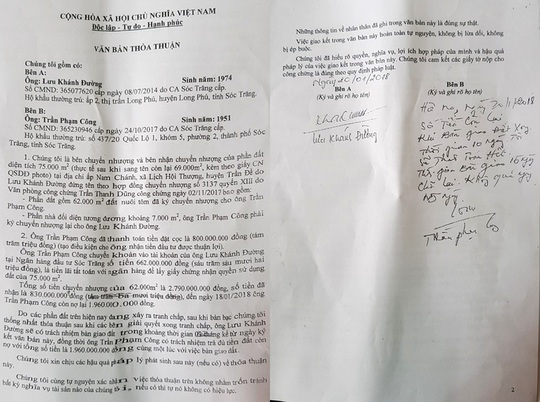 CỘNG HÒA XÃ HỘI CHỦ NGHĨA VIỆT NAM
Độc lập - Tự do - Hạnh phúc
VĂN BẢN THỎA THUẬN
Chúng tôi gồm có:
Bên A:
Ông: Lưu Khánh Đường Sinh năm: 1974
Số CMND: 365077620 cấp ngày 08/07/2014 do CA Sóc Trăng cấp.
Hộ khẩu thường trú: ấp 2, thị trấn Long Phú, huyện Long Phú, tỉnh Sóc Trăng.
Bên B:
Ông: Trần Phạm Công Sinh năm: 1951
Số CMND: 365230946 cấp ngày 24/10/2017 do CA Sóc Trăng cấp.
Hộ khẩu thường trú: số 437/20 Quốc Lộ 1, khóm 5, phường 2, thành phố Sóc
Trăng, tỉnh Sóc Trăng.
1. Chúng tôi là bên chuyển nhượng và bên nhận chuyển nhượng của phần đất
diện tích 75.000 m² (thực tế sau khi sang tên còn lại 69.000m², kèm theo giấy CN
QSDĐ photo) tại địa chỉ ấp Nam Chánh, xã Lịch Hội Thượng, huyện Trần Đề do
Lưu Khánh Đường đứng tên theo hợp đồng chuyển nhượng số 3137 quyển XIII do
Văn phòng công chứng Trần Thanh Dũng công chứng ngày 02/11/2017 bao gồm:
- Phần đất gồm 62.000 m² đất nuôi tôm đã ký chuyển nhượng cho ông Trần
Phạm Công.
- Phần nhà đối diện tương đương khoảng 7.000 m², ông Trần Phạm Công phải
ký chuyển nhượng lại cho ông Lưu Khánh Đường.
2. Ông Trần Phạm Công đã thanh toán tiền đặt cọc là 800.000.000 đồng (tám
trăm triệu đồng) (tạo điều kiện cho ông nhận tiền đầu tư được thuận lợi).
Ông Trần Phạm Công chuyển khoản vào tài khoản của ông Lưu Khánh Đường
tại Ngân hàng đầu tư Sóc Trăng số tiền 662.000.000 đồng (sáu trăm sáu mươi hai
triệu đồng), là tiền lãi tất toán với ngân hàng để lấy giấy chứng nhận quyền sử dụng
đất của 75.000 m².
Tổng số tiền chuyển nhượng của 62.000m² là 2.790.000.000 đồng, số tiền đã
nhận là 830.000.000 đồng mươi triệu đồng), đến ngày 18/01/2018 ông
Trần Phạm Công còn nợ lại 1.960.000.000 đồng.
Do các phần đất trên hiện nay đang xảy ra tranh chấp, sau khi bàn bạc chúng tôi
thống nhất thỏa thuận sau khi các bên giải quyết xong tranh chấp, ông Lưu Khánh
Đường sẽ có trách nhiệm bàn giao đất trong khoảng thời gian tháng kể từ ngày ký
kết văn bản này, đồng thời ông Trần Phạm Công có trách nhiệm trả đủ tiền đất còn
nợ với tổng số tiền là 1.960.000.000 đồng cùng một lúc với việc bàn giao đất.
Chúng tôi xin chịu các hậu quả pháp lý phát sinh sau này (nếu có) về thỏa thuận
này.
Chúng tôi cùng tự nguyện xác nhận việc thỏa thuận trên không nhằm trốn tránh
bất kỳ nghĩa vụ tài sản nào của chúng tôi, nếu có thì tự nó không có hiệu lực.
Những thông tin về nhân thân đã ghi trong văn bản này là đúng sự thật.
Việc giao kết trong văn bản này hoàn toàn tự nguyện, không bị lừa dối, không
bị ép buộc.
Chúng tôi đã hiểu rõ quyền, nghĩa vụ, lợi ích hợp pháp của mình và hậu quả
pháp lý của việc giao kết trong văn bản này. Chúng tôi cam kết các giấy tờ nộp cho
công chứng là đúng theo quy định pháp luật.
Ngày 20/01/2018
Bên A
(Ký và ghi rõ họ tên)
Lưu Khánh Đường
Bên B
(Ký và ghi rõ họ tên)
Hôm nay, ngày 20/1/2018
Số Tiền Còn Lại
Khi Bàn giao Đất Xong
Thời gian 10 ngày
Thanh Toán Hết
Thời gian Bàn giao 10 ngày
2